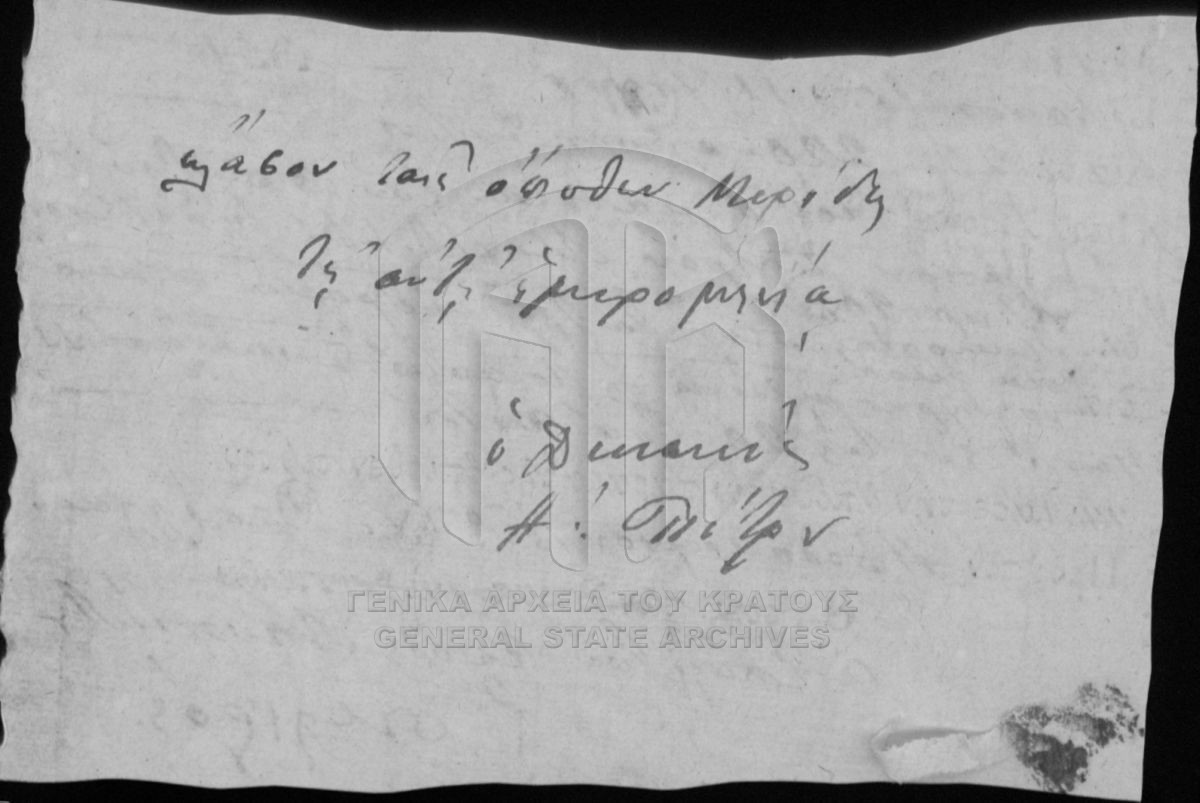 ἔλαβον τὰς ὄπισθεν μερίδας
Τῇ αὐτῇ ἡμερομηνίᾳ
ὁ Δεκανεὺς
Α. Πέτρου
ΓΕΝΙΚΑ ΑΡΧΕΙΑ ΤΟΥ ΚΡΑΤΟΥΣ
GENERAL STATE ARCHIVES